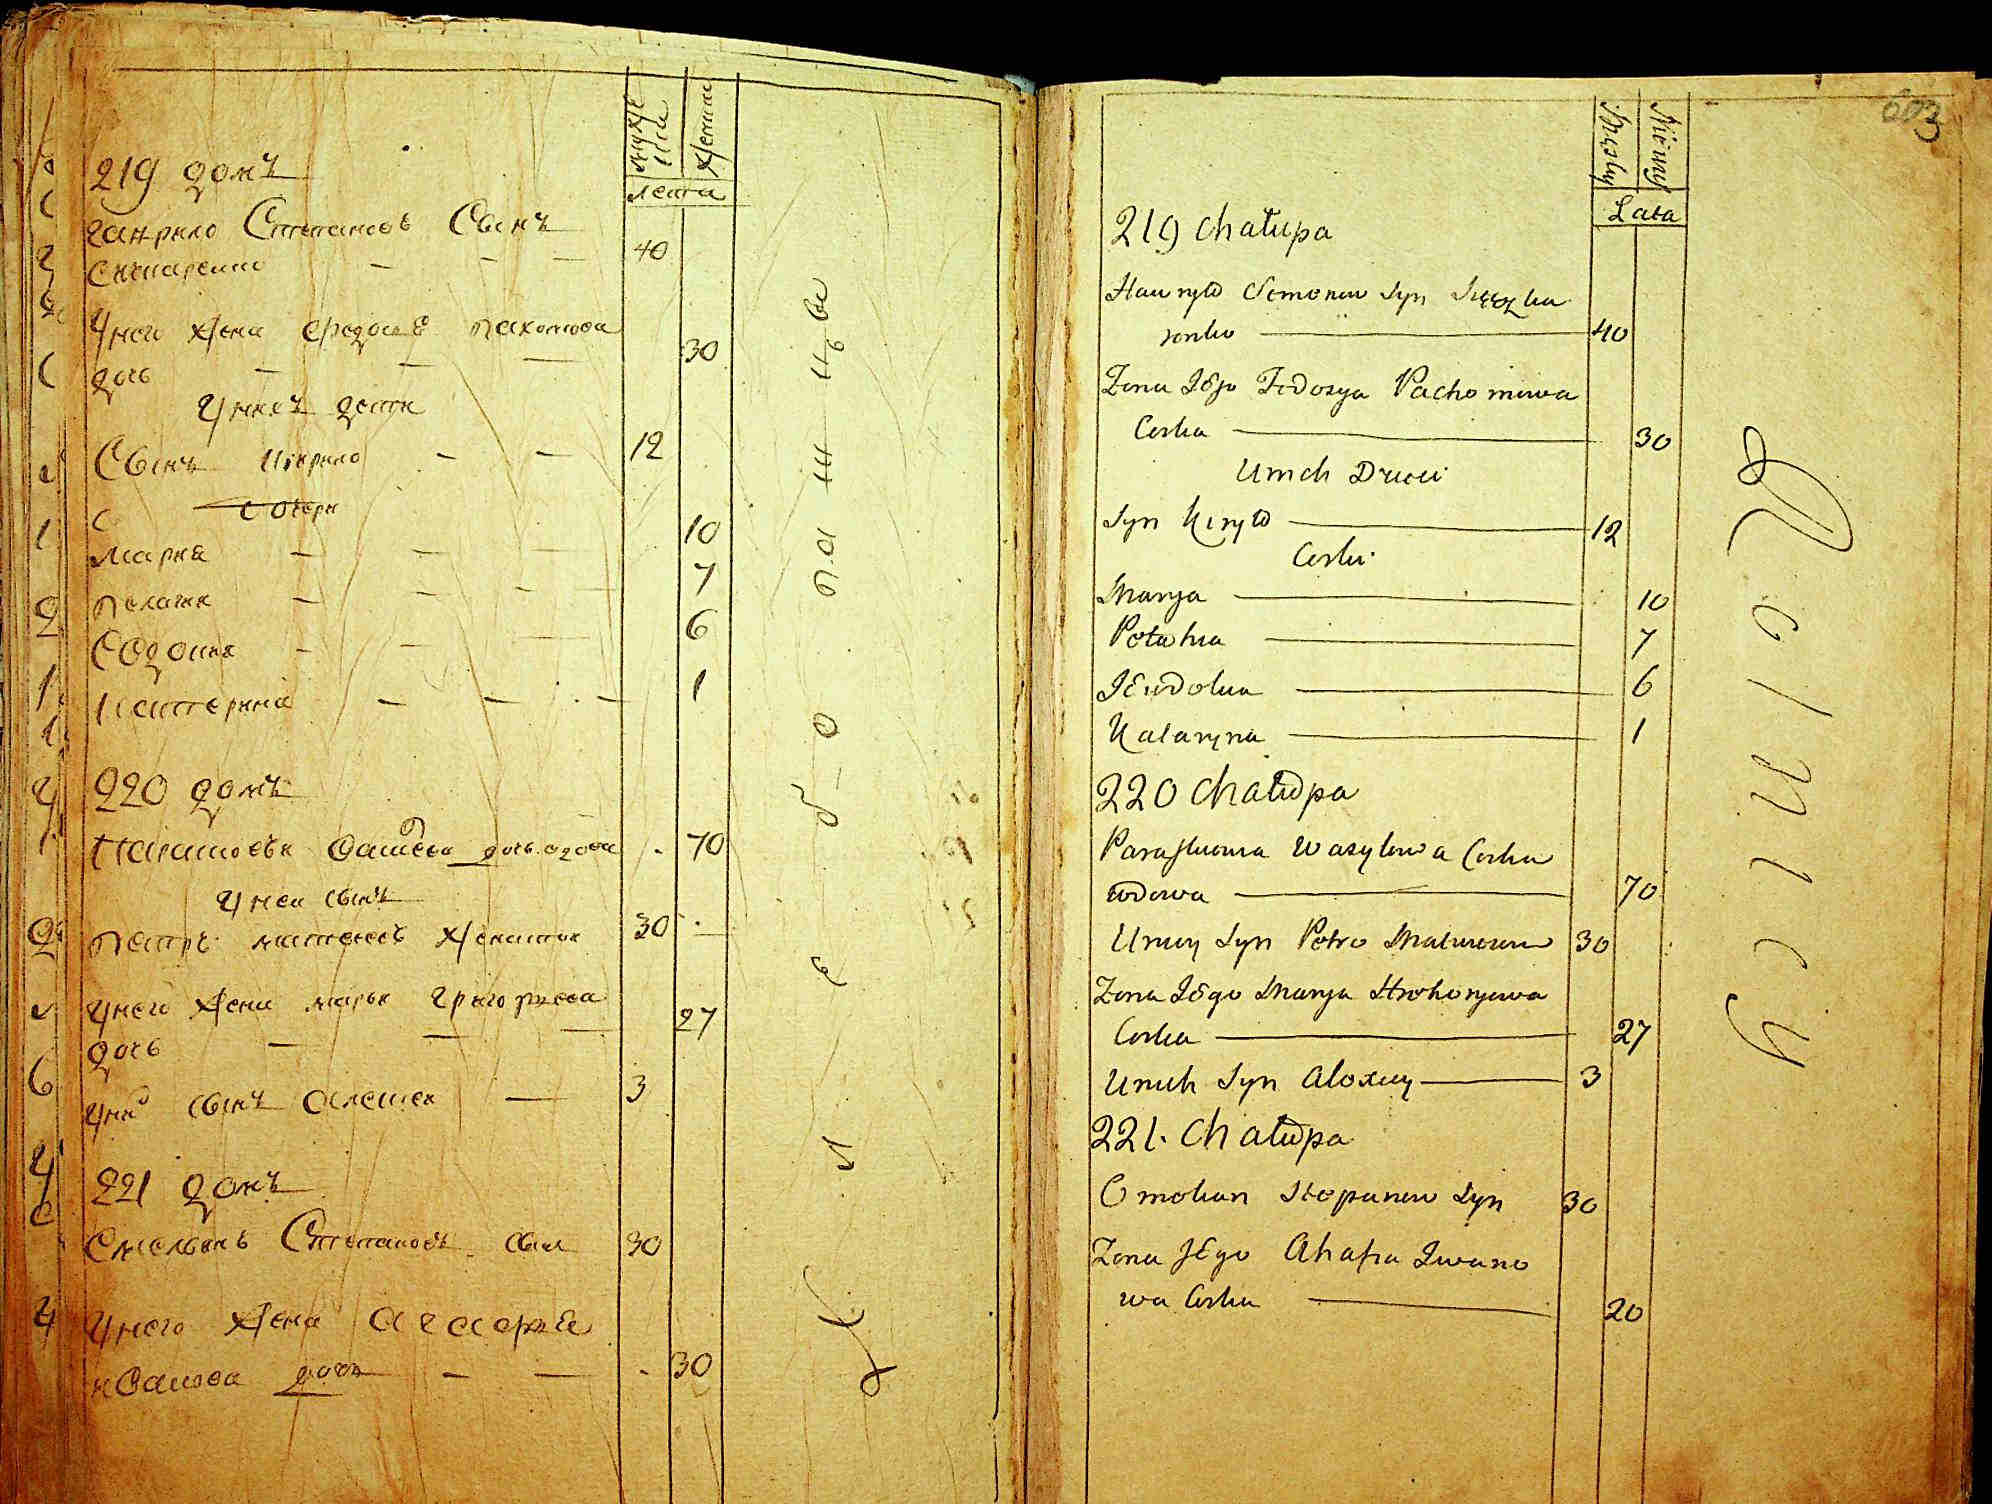 мужеска
женска
лета
219 домъ
гаврило Степановъ Сынъ 40
Слюсаренко
унего жена Федосиѣ пахомова 30
дочь
унихъ дети
Сынъ Кирило 12
дочери
Мария 10
пелагия 7
Евдокия 6
Катерина 1
220 домъ
Парасковия дочь вдова 70
унеи сынъ
петръ матвеевъ женатои 30
унего жена мария григориева 27
дочь
унихъ сынъ Алексеи 3
221 домъ
Емельянъ Степановъ сынъ 30
унего жена Агафиѣ
иванова дочь 30
хлѣбопашцы
603
Męzkiey
Żenskiey
Lata
219 Chałupa
Hawryło Semenow Syn
renko 40
Zona IEgo Fedosya Pachomowa
Corka 30
Unich Dzieci
Syn Kiryło 12
Corki
Marya 10
Pełahia 7
IEwdokia 6
Kataryna 1
220 Chałupa
Paraskiewia Wasylowa Corka
wdowa 70
Uniey Syn Petro Matwieiew 30
Zona IEgo Marya Hrehoryewa
Corka 27
Unich Syn Alexiey 3
221. Chałupa
Omelian Stepanow Syn 30
Zona JEgo Ahafia Iwano
wa Corka 20
Rolnicy